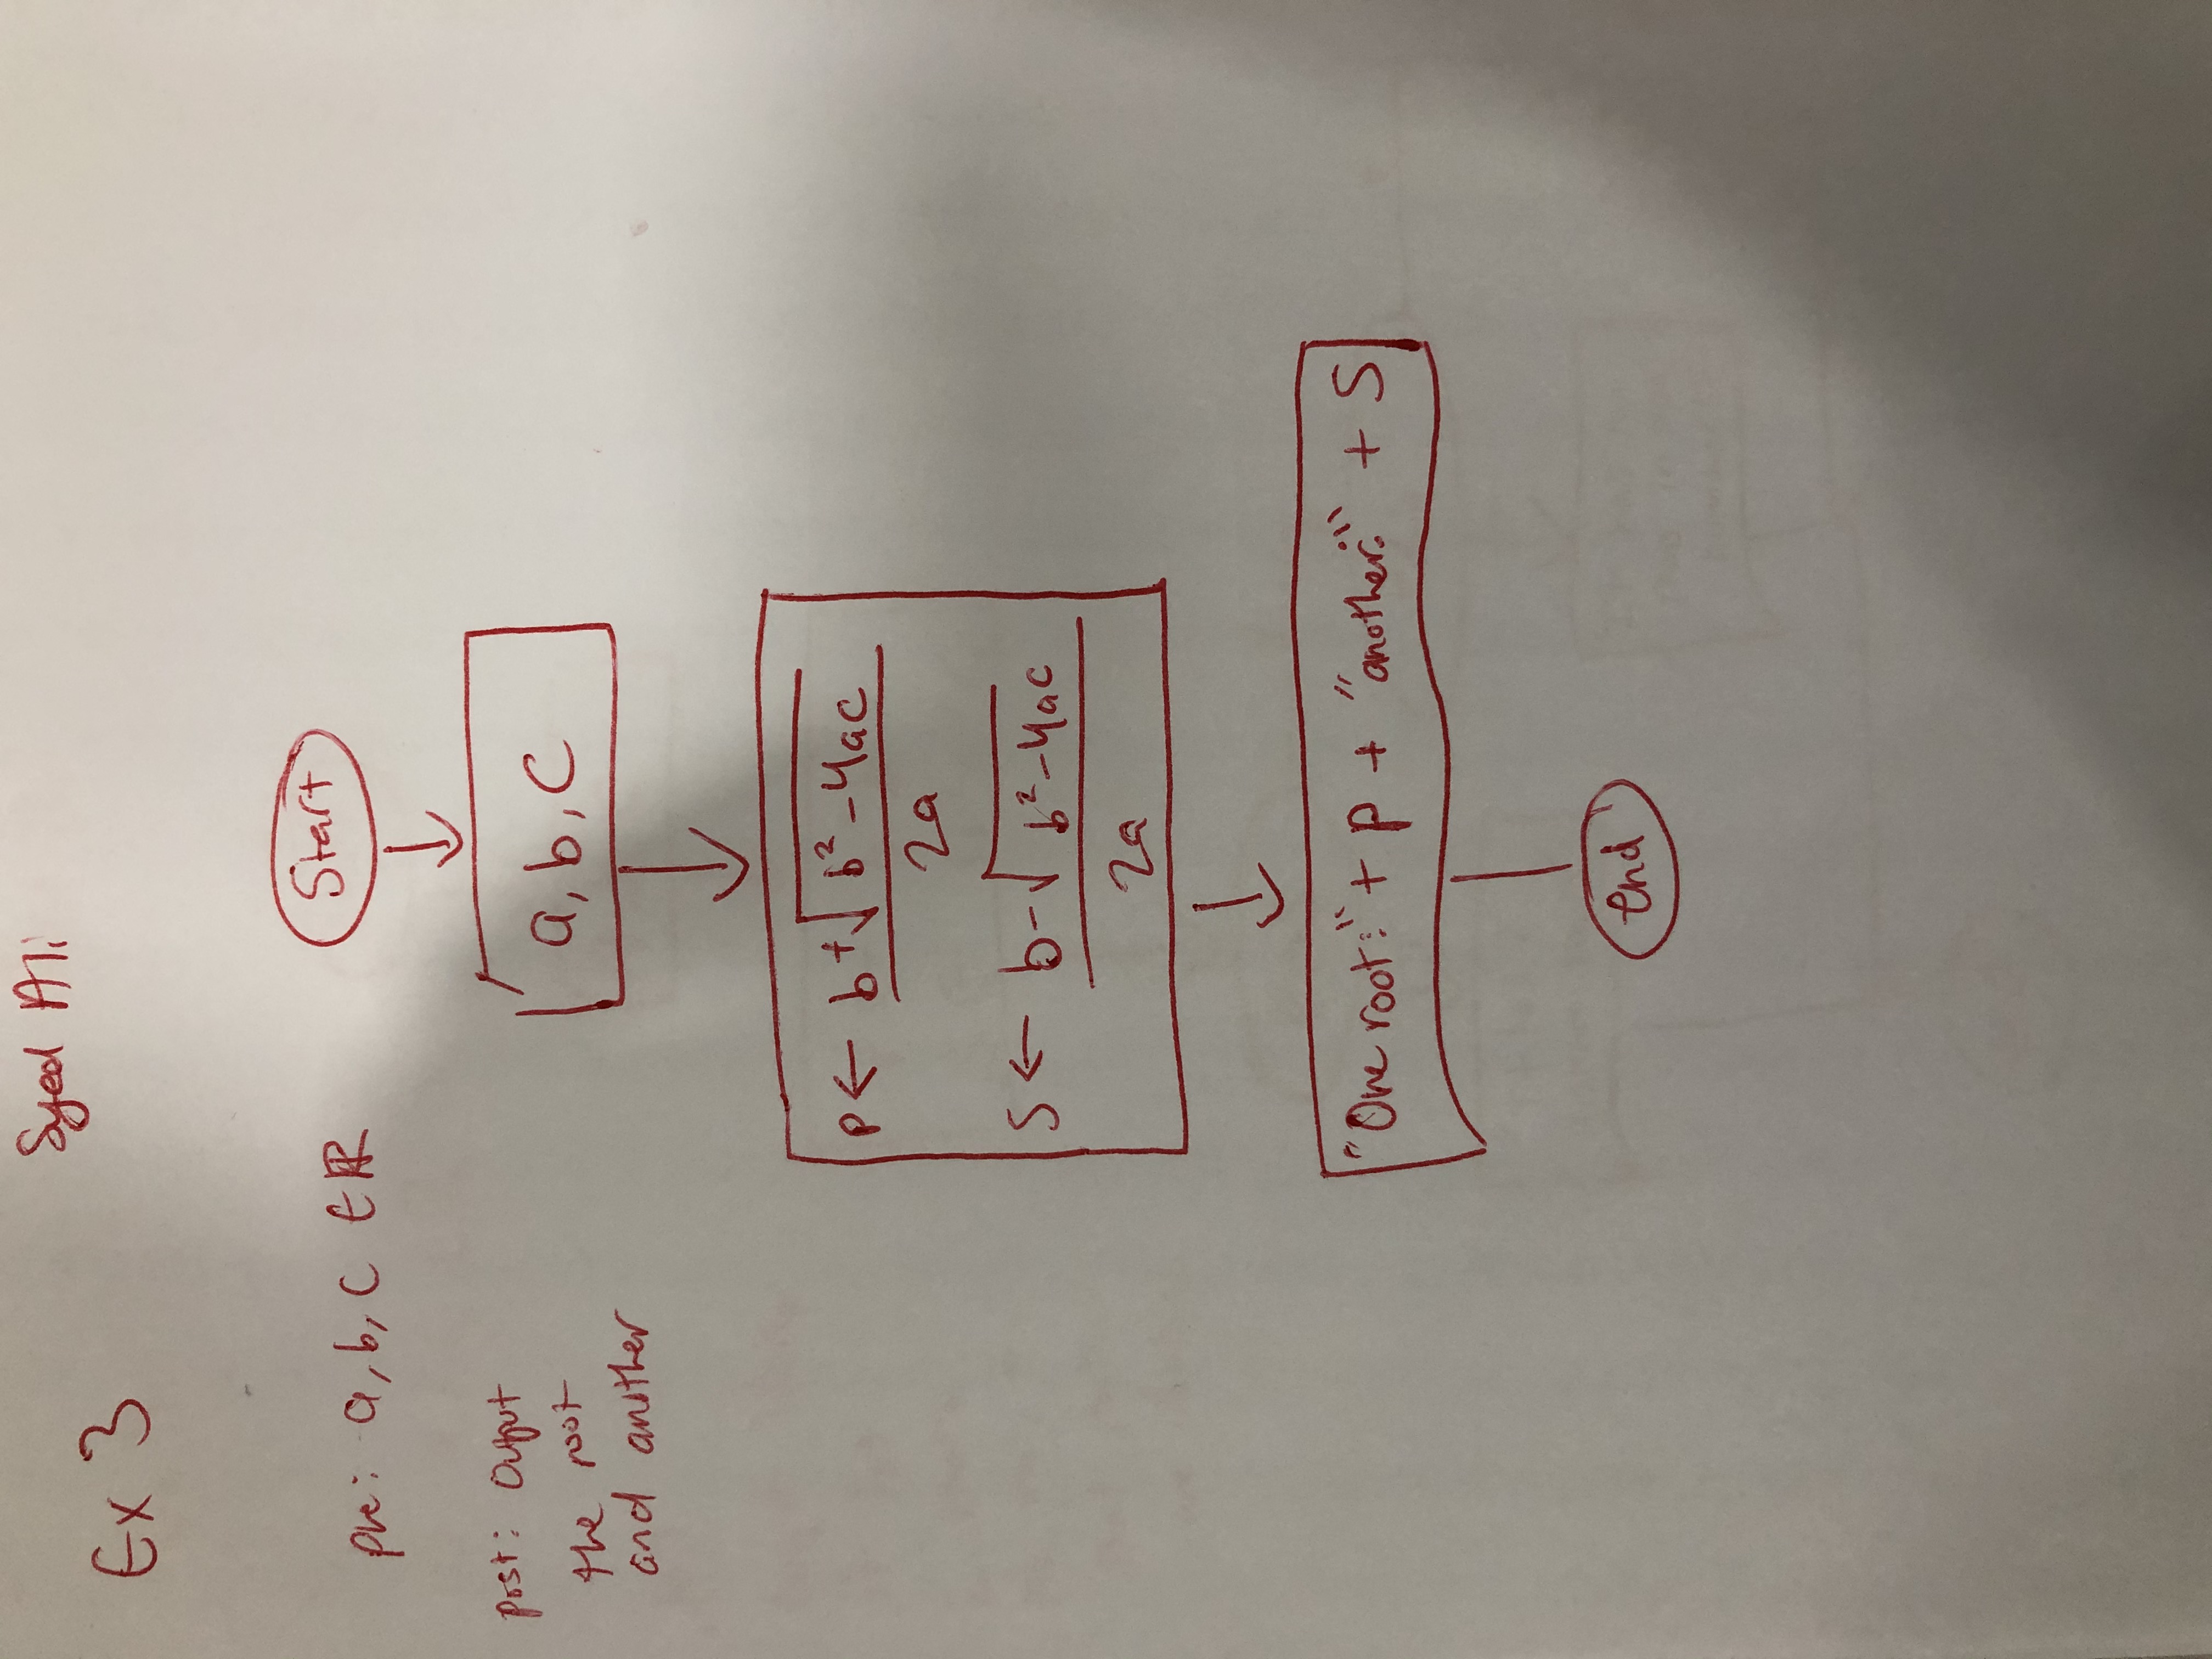 Syed Ali
Ex 3
Start
pre: a, b, c ∈ ℝ
a, b, c
post: Output
the root
and another
P ← b + √b² - 4ac
2a
S ← b - √b² - 4ac
2a
"One root:" + P + "another:" + S
End